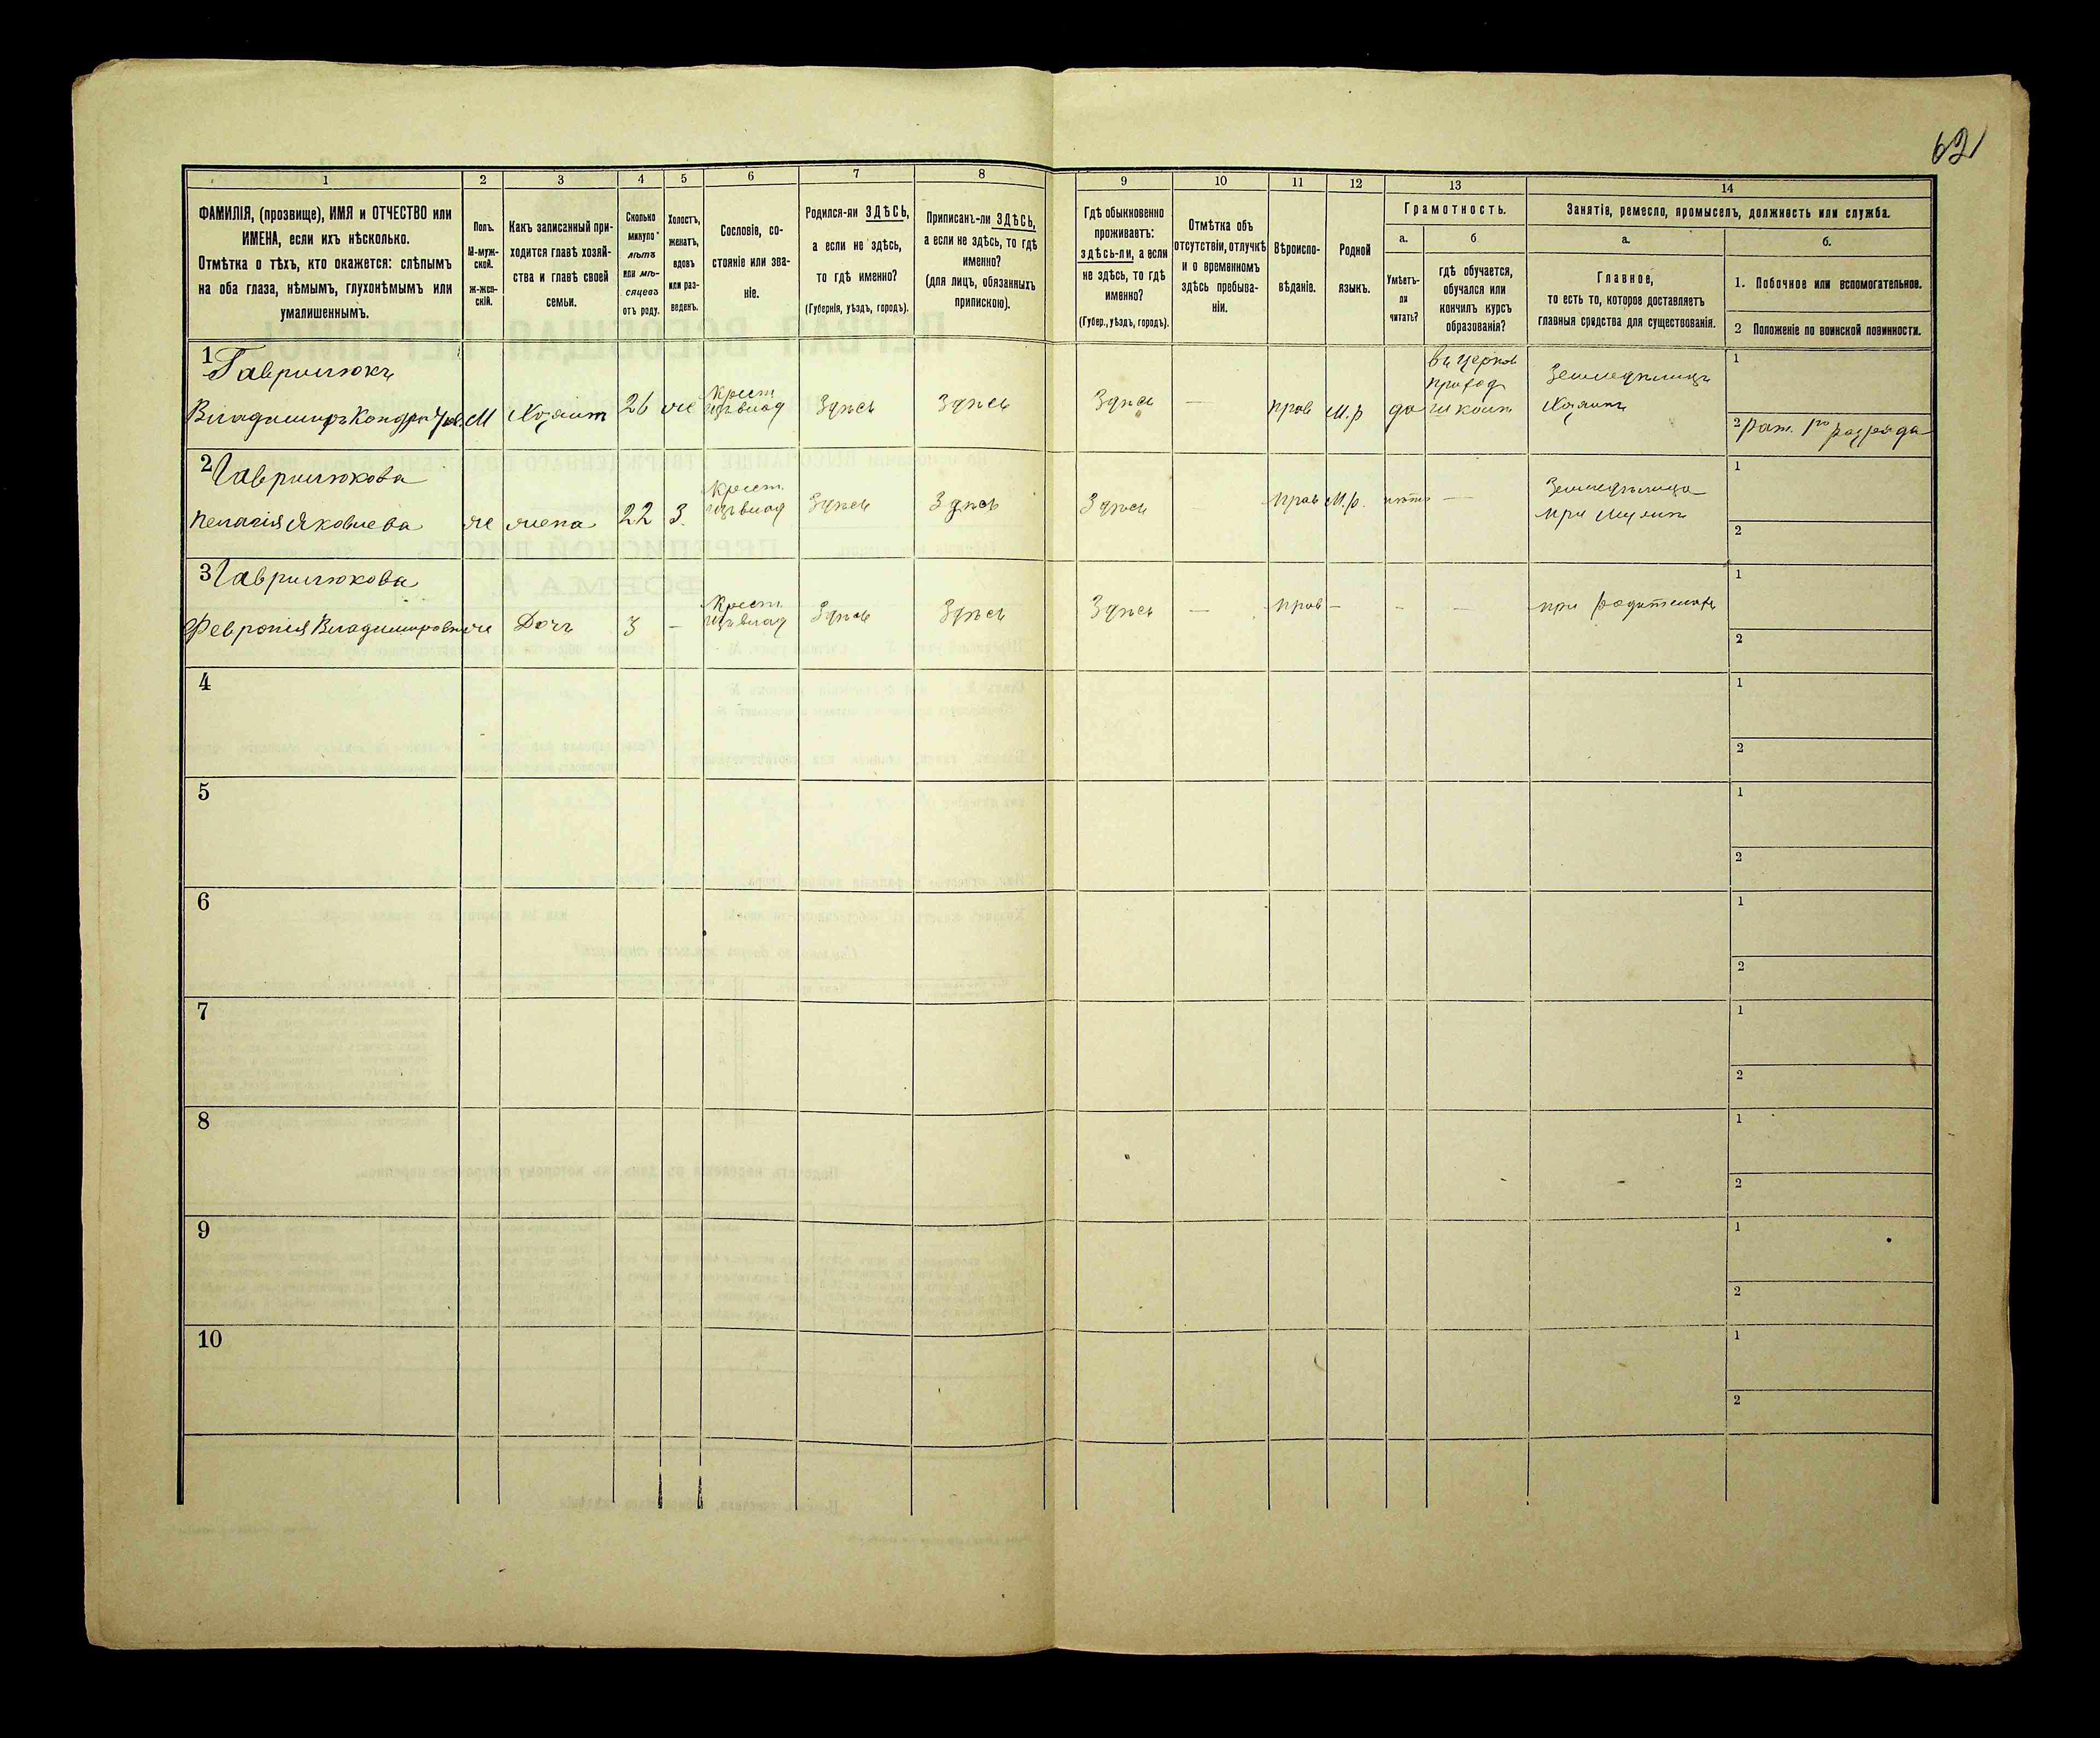 62
1 2 3 4 5 6 7 8 9 10 11 12 13 14
ФАМИЛІЯ, (прозвище), ИМЯ и ОТЧЕСТВО или
ИМЕНА, если ихъ нѣсколько.
Отмѣтка о тѣхъ, кто окажется: слѣпымъ
на оба глаза, нѣмымъ, глухонѣмымъ или
умалишеннымъ.
Полъ.
М-муж-
ской.
Ж-жен-
скій.
Какъ записанный при-
ходится главѣ хозяй-
ства и главѣ своей
семьи.
Сколько
минуло
лѣтъ
или мѣ-
сяцевъ
отъ роду.
Холостъ,
женатъ,
вдовъ
или раз-
веденъ.
Сословіе, со-
стояніе или зва-
ніе.
Родился-ли ЗДѢСЬ,
а если не здѣсь,
то гдѣ именно?
(Губернія, уѣздъ, городъ).
Приписанъ-ли ЗДѢСЬ,
а если не здѣсь, то гдѣ
именно?
(для лицъ, обязанныхъ
припискою).
Гдѣ обыкновенно
проживаетъ:
здѣсь-ли, а если
не здѣсь, то гдѣ
именно?
(Губер., уѣздъ, городъ).
Отмѣтка объ
отсутствіи, отлучкѣ
и о временномъ
здѣсь пребыва-
ніи.
Вѣроиспо-
вѣданіе.
Родной
языкъ.
Грамотность.
а.
Умѣетъ-
ли
читать?
б
гдѣ обучается,
обучался или
кончилъ курсъ
образованія?
Занятіе, ремесло, промыселъ, должность или служба.
а.
Главное,
то есть то, которое доставляетъ
главныя средства для существованія.
б.
1. Побочное или вспомогательное.
2 Положеніе по воинской повинности.
1 Гаврилюкъ
Владимиръ Кондратьев. М Хозяинъ 26 ж Крест. изъ влад Здѣсь Здѣсь Здѣсь — прав М.р да
въ церков
приход
школѣ
Земледѣлецъ
Хозяинъ
1
2 Рат. 1го разряда
2 Гаврилюкова
Пелагія Яковлева ж жена 22 З. Крест. изъ влад Здѣсь Здѣсь Здѣсь прав М.р. нѣтъ —
Земледѣлица
при мужѣ
1
2
3 Гаврилюкова
Февронія Владимировна ж Дочь 3 — Крест. изъ влад Здѣсь Здѣсь Здѣсь — прав — - — при родителяхъ
1
2
4
1
2
5
1
2
6
1
2
7
1
2
8
1
2
9
1
2
10
1
2